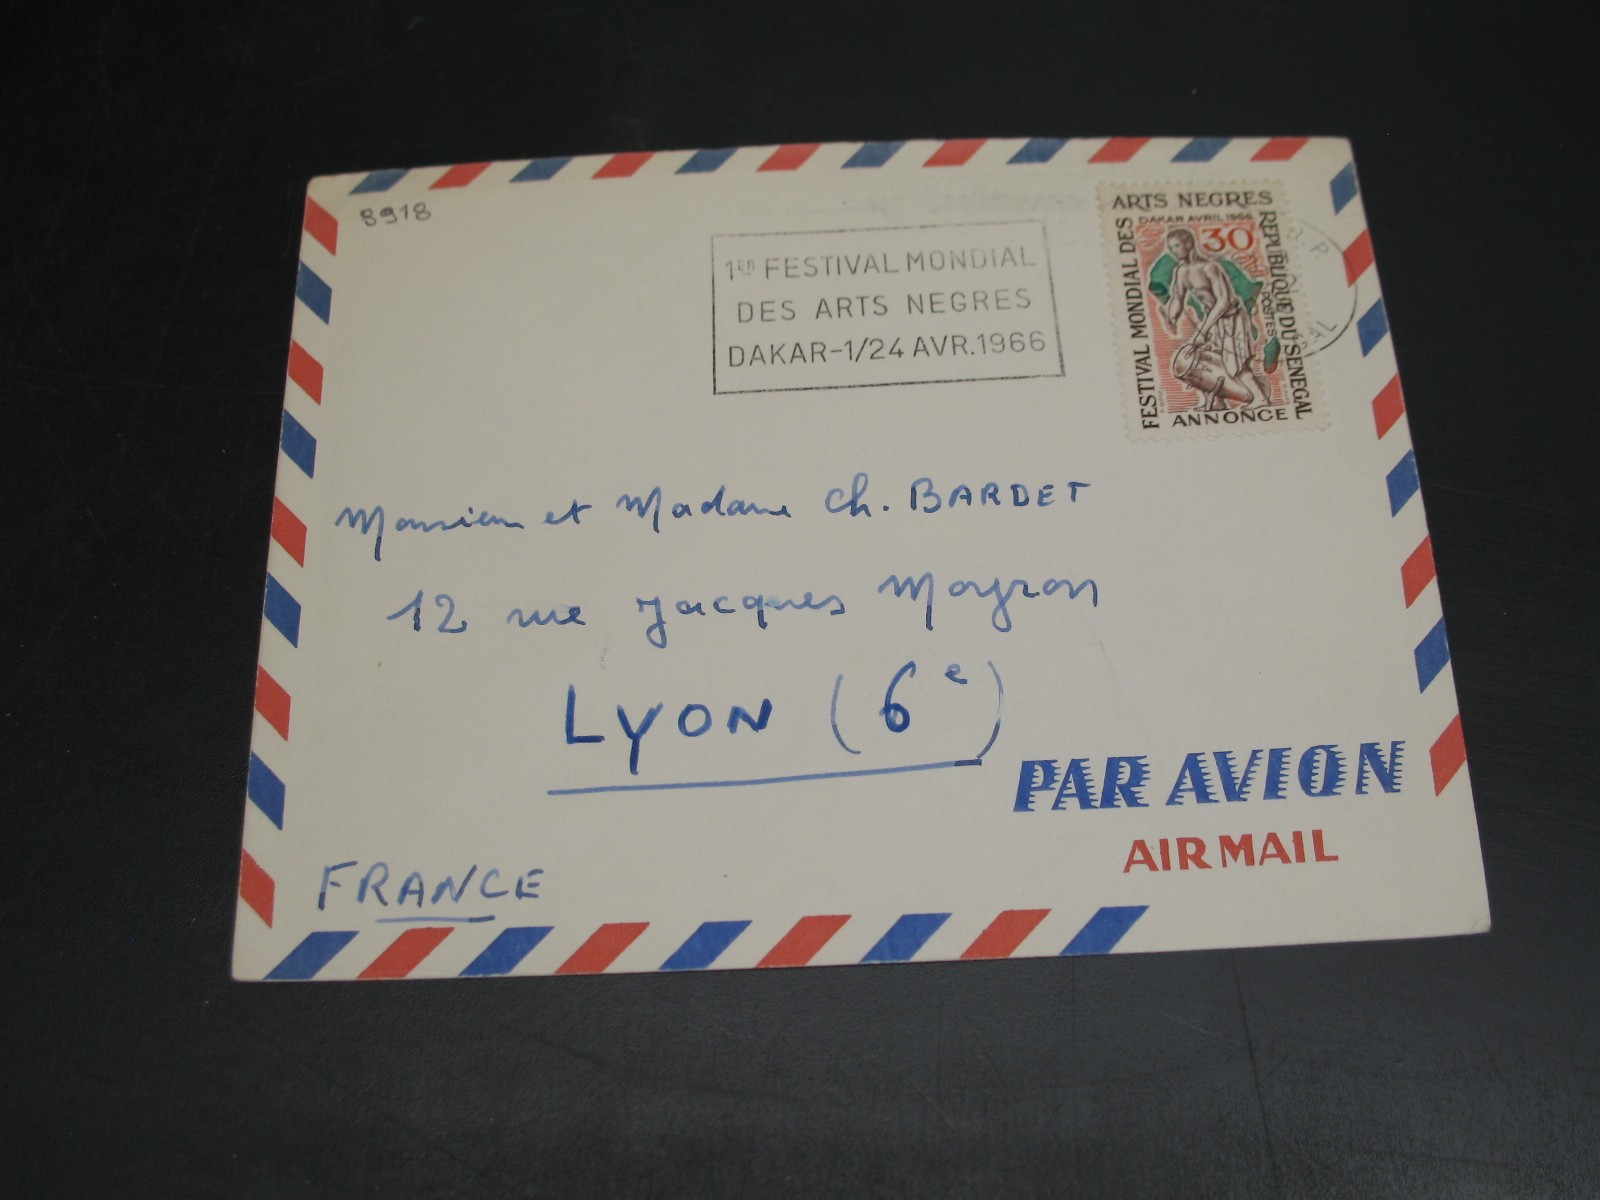 8918
1ER FESTIVAL MONDIAL
DES ARTS NEGRES
DAKAR-1/24 AVR.1966
ARTS NEGRES
DAKAR AVRIL 1966
30
FESTIVAL MONDIAL DES
REPUBLIQUE DU SENEGAL
POSTES
ANNONCE
Monsieur et Madame Ch. BARDET
12 rue Jacques Moyron
LYON (6e)
FRANCE
PAR AVION
AIR MAIL